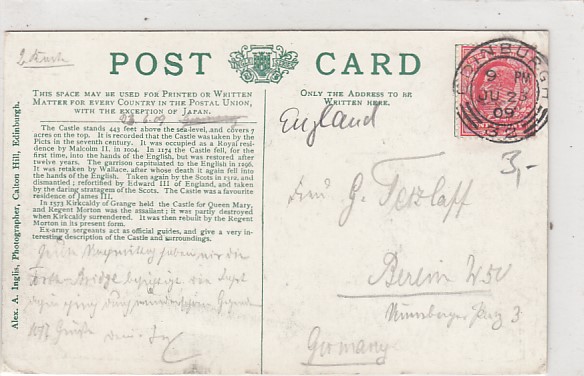 2. Karte
POST CARD
THIS SPACE MAY BE USED FOR PRINTED OR WRITTEN
MATTER FOR EVERY COUNTRY IN THE POSTAL UNION,
WITH THE EXCEPTION OF JAPAN.
23.6.09
The Castle stands 443 feet above the sea-level, and covers 7
acres on the top. It is recorded that the Castle was taken by the
Picts in the seventh century. It was occupied as a Royal resi-
dence by Malcolm II. in 1004. In 1174 the Castle fell, for the
first time, into the hands of the English, but was restored after
twelve years. The garrison capitulated to the English in 1296.
It was retaken by Wallace, after whose death it again fell into
the hands of the English. Taken again by the Scots in 1312, and
dismantled; refortified by Edward III of England, and taken
by the daring stratagems of the Scots. The Castle was a favourite
residence of James III.
In 1573 Kirkcaldy of Grange held the Castle for Queen Mary,
and Regent Morton was the assailant; it was partly destroyed
when Kirkcaldy surrendered. It was then rebuilt by the Regent
Morton in its present form.
Ex-army sergeants act as official guides, and give a very in-
teresting description of the Castle and surroundings.
haben wir die
Forth-Bridge
Alex. A. Inglis, Photographer, Calton Hill, Edinburgh.
ONLY THE ADDRESS TO BE
WRITTEN HERE.
England
EDINBURGH
9 PM
JU 23
09
3,-
Frau G. Tetzlaff
Berlin W50
Nürnberger Platz 3
Germany